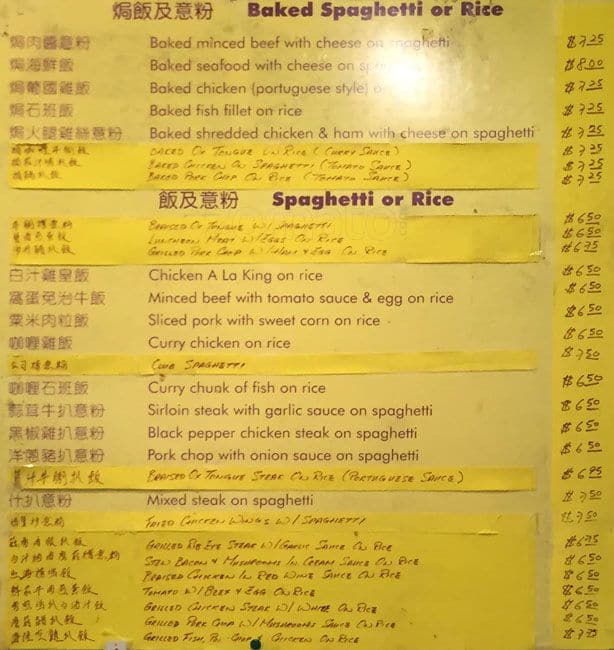 焗飯及意粉 Baked Spaghetti or Rice
焗肉醬意粉 Baked minced beef with cheese on spaghetti $7.25
焗海鮮飯 Baked seafood with cheese on $8.00
焗葡國雞飯 Baked chicken (portuguese style) $7.25
焗石班飯 Baked fish fillet on rice $7.25
焗火腿雞絲意粉 Baked shredded chicken & ham with cheese on spaghetti $7.25
BAKED OX TONGUE ON RICE (CURRY SAUCE) $7.25
BAKED CHICKEN ON SPAGHETTI (TOMATO SAUCE) $7.25
BAKED PORK CHOP ON RICE (TOMATO SAUCE) $7.25
飯及意粉 Spaghetti or Rice
BRAISED OX TONGUE W/ SPAGHETTI $6.50
LUNCHEON MEAT W/ EGGS ON RICE $6.50
GRILLED PORK CHOP W/ HAM & EGG ON RICE $6.75
白汁雞皇飯 Chicken A La King on rice $6.50
窩蛋免治牛飯 Minced beef with tomato sauce & egg on rice $6.50
粟米肉粒飯 Sliced pork with sweet corn on rice $6.50
咖喱雞飯 Curry chicken on rice $6.50
CLUB SPAGHETTI $7.50
咖喱石班飯 Curry chunk of fish on rice $6.50
蒜茸牛扒意粉 Sirloin steak with garlic sauce on spaghetti $6.50
黑椒雞扒意粉 Black pepper chicken steak on spaghetti $6.50
洋蔥豬扒意粉 Pork chop with onion sauce on spaghetti $6.50
BRAISED OX TONGUE STEAK ON RICE (PORTUGUESE SAUCE) $6.95
什扒意粉 Mixed steak on spaghetti $7.50
FRIED CHICKEN WINGS W/ SPAGHETTI $7.50
GRILLED RIB EYE STEAK W/ GARLIC SAUCE ON RICE $6.75
STEW BACON & MUSHROOMS IN CREAM SAUCE ON RICE $6.50
BRAISED CHICKEN IN RED WINE SAUCE ON RICE $6.50
TOMATO W/ BEEF & EGG ON RICE $6.50
GRILLED CHICKEN STEAK W/ WHITE ON RICE $6.50
GRILLED PORK CHOP W/ MUSHROOMS SAUCE ON RICE $6.50
GRILLED FISH, CHOP & CHICKEN ON RICE